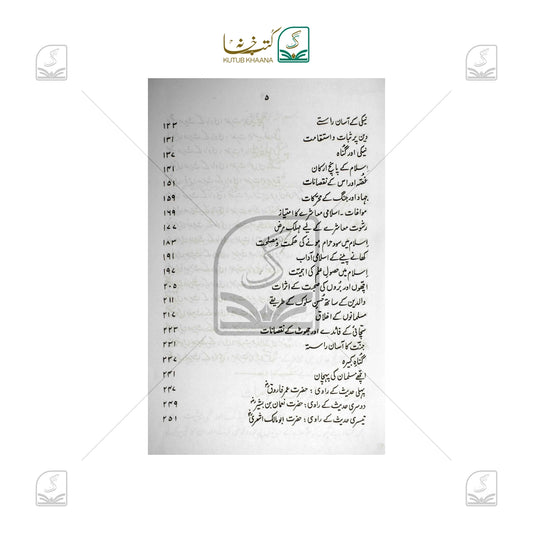 کتب خانہ
KUTUB KHAANA
۵
نیکی کے آسان راستے ۱۲۳
دین پر ثبات و استقامت ۱۳۱
نیکی اور گناہ ۱۳۷
اسلام کے پانچ ارکان ۱۴۱
غصّہ اور اس کے نقصانات ۱۵۱
جہاد اور جنگ کے محرکات ۱۵۹
مواخات ۔ اسلامی معاشرے کا امتیاز ۱۶۹
رشوت معاشرے کے لیے مہلک مرض ۱۷۷
اسلام میں سود حرام ہونے کی حکمت و مصلحت ۱۸۳
کھانے پینے کے اسلامی آداب ۱۹۱
اسلام میں حصولِ علم کی اہمیت ۱۹۷
اچھوں اور بُروں کی صحبت کے اثرات ۲۰۵
والدین کے ساتھ حُسنِ سلوک کے طریقے ۲۱۱
مسلمانوں کے اخلاق ۲۱۷
سچائی کے فائدے اور جھوٹ کے نقصانات ۲۲۳
جنّت کا آسان راستہ ۲۳۱
گناہِ کبیرہ ۲۳۷
اچھے مسلمان کی پہچان ۲۴۱
پہلی حدیث کے راوی : حضرت عمر فاروقؓ ۲۴۷
دوسری حدیث کے راوی : حضرت نعمان بن بشیرؓ ۲۴۹
تیسری حدیث کے راوی : حضرت ابو مالک اشعریؓ ۲۵۱